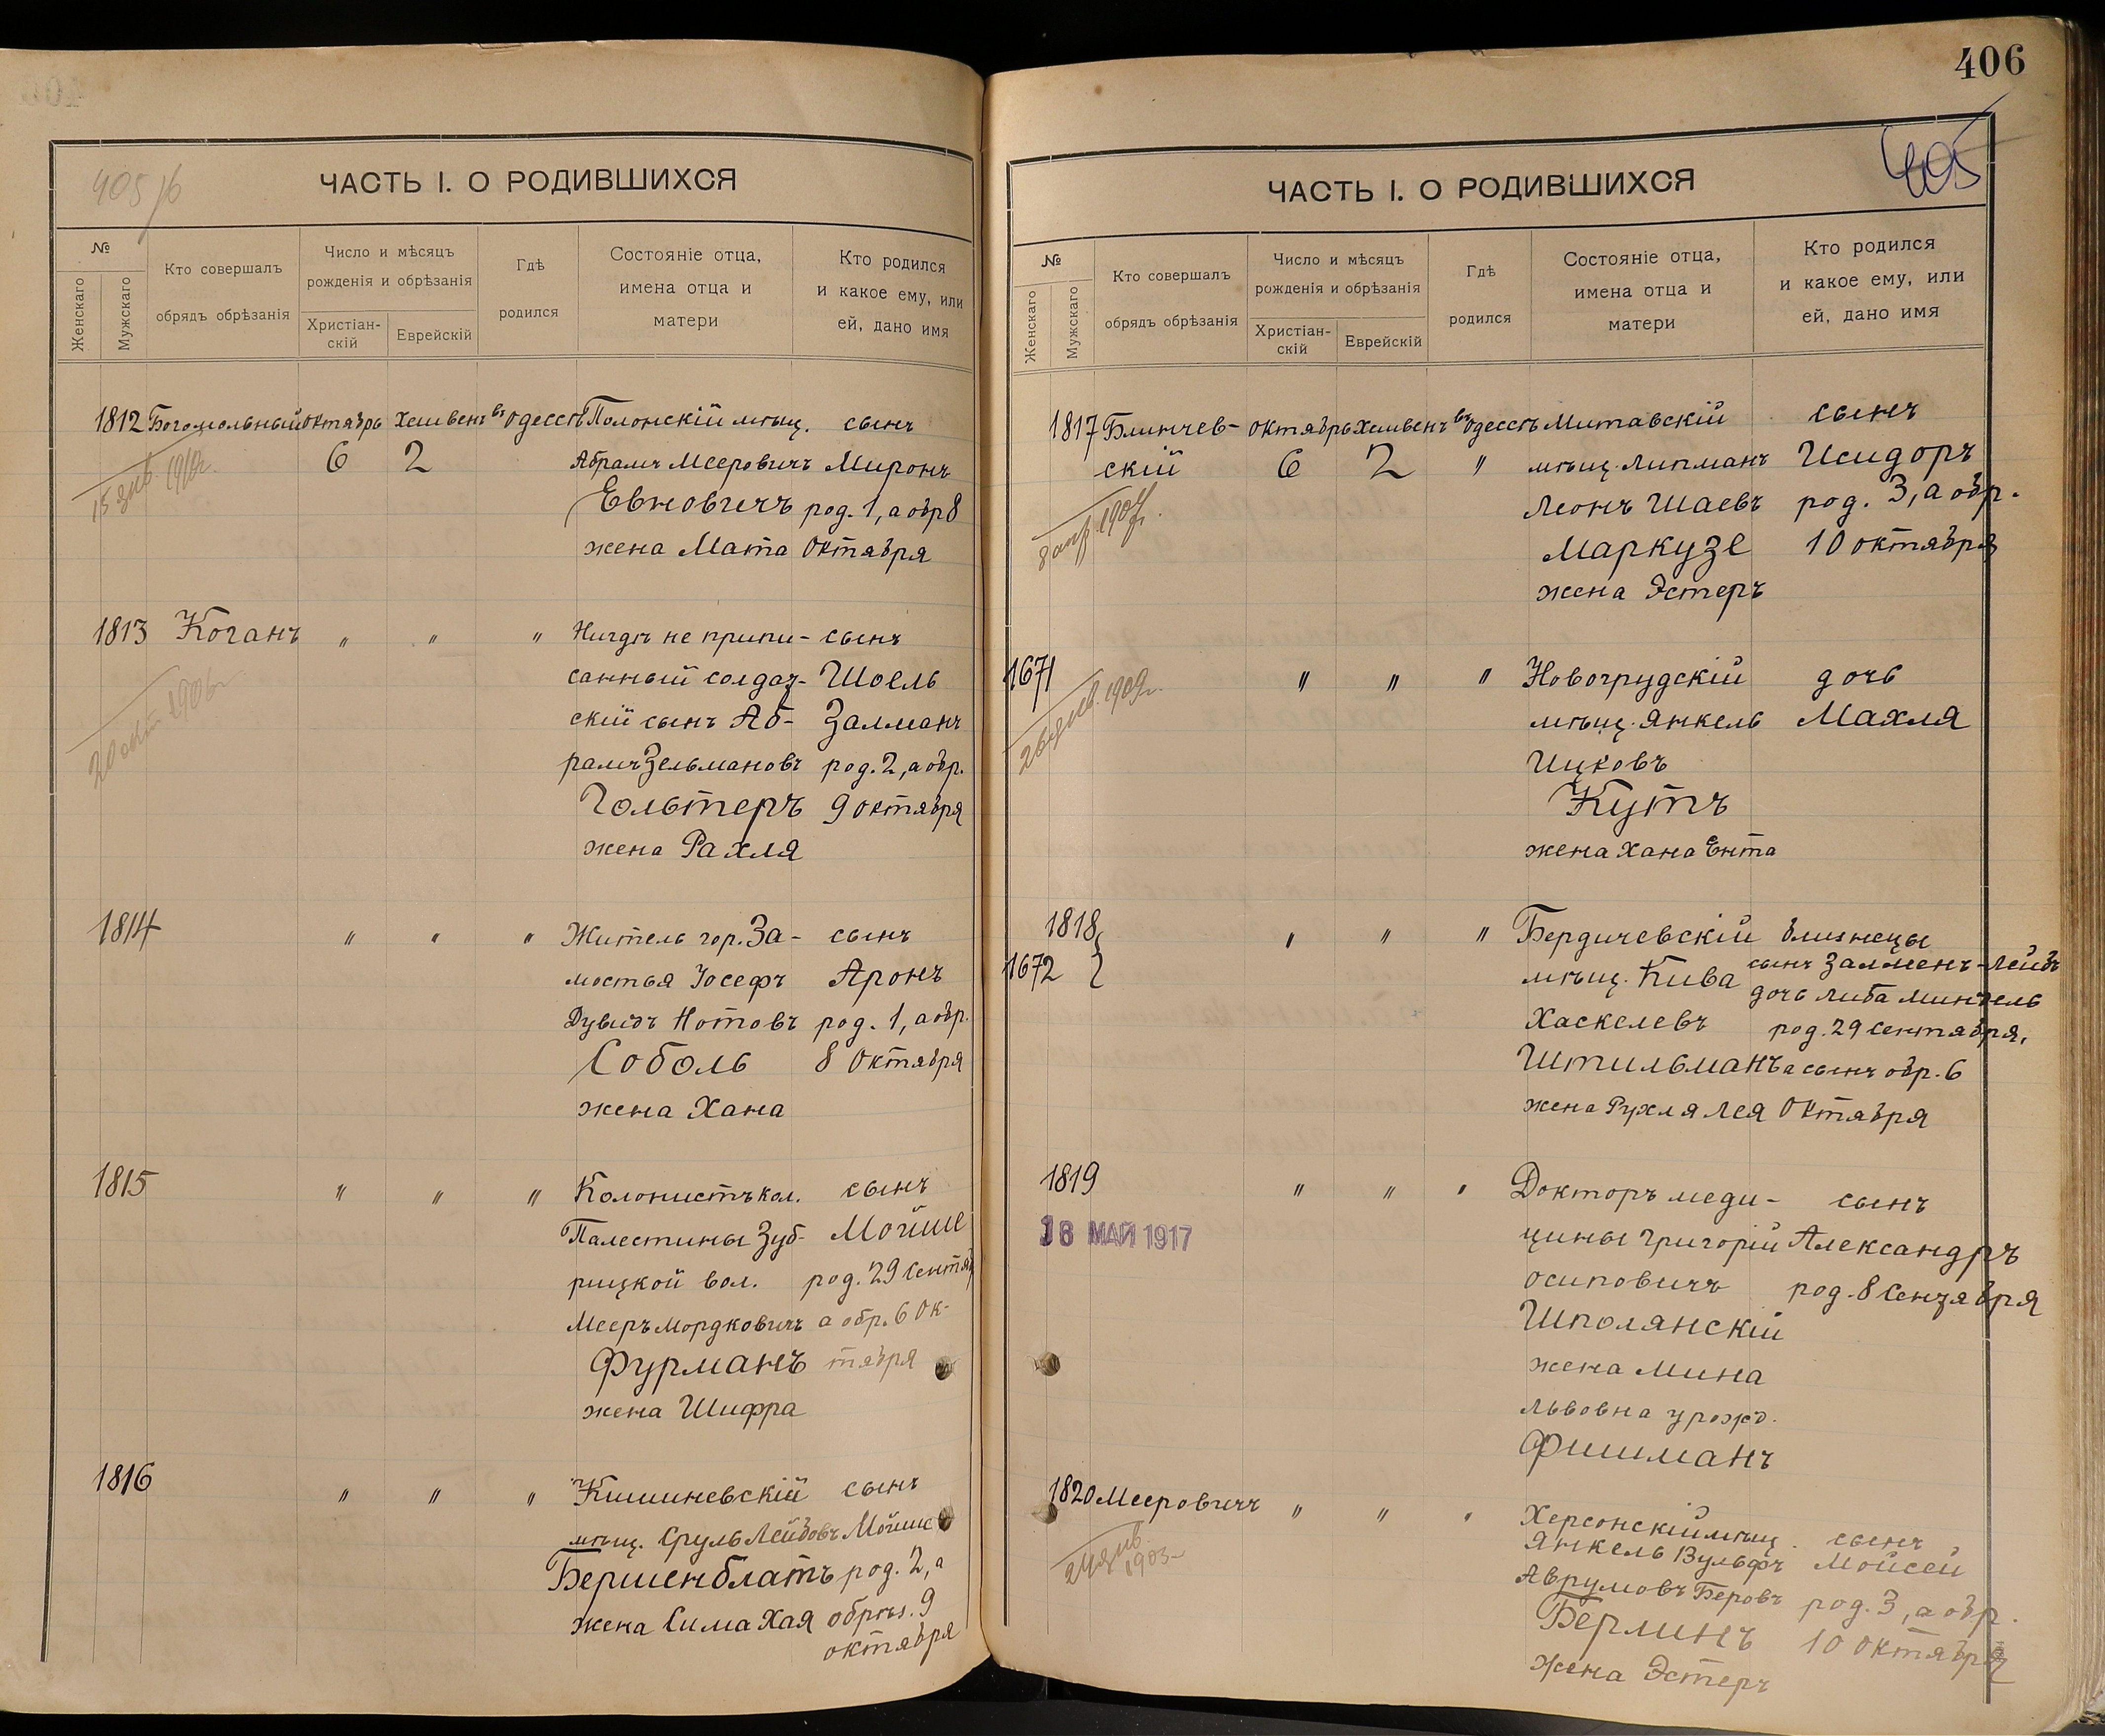 405 об
ЧАСТЬ I. О РОДИВШИХСЯ
№
Женскаго
Мужскаго
Кто совершалъ
обрядъ обрѣзанія
Число и мѣсяцъ
рожденія и обрѣзанія
Христіан-
скій
Еврейскій
Гдѣ
родился
Состояніе отца,
имена отца и
матери
Кто родился
и какое ему, или
ей, дано имя
1812 Богомольный октябрь Хешвенъ въ Одессѣ Полонскій мѣщ. сынъ
6 2 Абрамъ Мееровичъ Миронъ
Евновичъ род. 1, а обр 8
жена Мата октября
1813 Коганъ " " " Нигдѣ не припи- сынъ
санный солдат- Шоель
скій сынъ Аб- Залманъ
рамъ Зельмановъ род. 2, а обр.
Гольтеръ 9 октября
жена Рахля
20 окт 1906г
1814 " " " Житель гор. За- сынъ
мостья Іосефъ Аронъ
Дувидъ Нотовъ род. 1, а обр.
Соболь 8 октября
жена Хана
1815 " " " Колонистъ кол. сынъ
Палестины Зуб- Мойше
рицкой вол. род. 29 Сентяб
Мееръ Мордковичъ а обр. 6 Ок-
Фурманъ тября
жена Шифра
1816 " " " Кишиневскій сынъ
мѣщ. Сруль Лейбовъ Мойше
Бершенблатъ род. 2, а
жена Сима Хая обрѣз. 9
октября
406
405
ЧАСТЬ I. О РОДИВШИХСЯ
№
Женскаго
Мужскаго
Кто совершалъ
обрядъ обрѣзанія
Число и мѣсяцъ
рожденія и обрѣзанія
Христіан-
скій
Еврейскій
Гдѣ
родился
Состояніе отца,
имена отца и
матери
Кто родился
и какое ему, или
ей, дано имя
1817 Блинчев- октябрь Хешвенъ въ Одессѣ Митавскій сынъ
скій 6 2 " мѣщ. Липманъ Исидоръ
Леонъ Шаевъ род. 3, а обр.
Маркузе 10 октября
жена Эстеръ
1671 " " " Новогрудскій дочь
мѣщ. Янкель Махля
Ицковъ
Кутъ
жена Хана Ента
1818 " " " Бердичевскій близнецы
1672 мѣщ. Кива сынъ Залменъ-Лейбъ
дочь Либа Миндель
Хаскелевъ род. 29 Сентября,
Штильманъ а сынъ обр. 6
жена Рухля Лея Октября
1819 " " " Докторъ меди- сынъ
18 МАЙ 1917
цины Григорій Александръ
Осиповичъ род. 8 Сентября
Шполянскій
жена Мина
Львовна урожд.
Фишманъ
1820 Мееровичъ " " " Херсонскій мѣщ. сынъ
Янкель Вульфъ Мойсей
Аврумовъ Беровъ род. 3, а обр.
Берлинъ 10 октября
жена Эстеръ